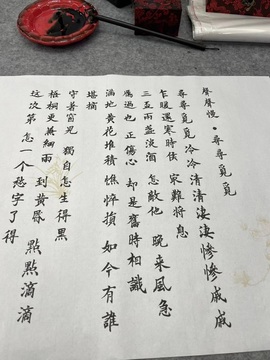 聲聲慢·尋尋覓覓
尋尋覓覓 冷冷清清 淒淒慘慘戚戚
乍暖還寒時候 最難將息
三盃兩盞淡酒 怎敵他 晚来風急
雁過也 正傷心 却是舊時相識
滿地黃花堆積 憔悴損 如今有誰
堪摘
守著窗児 獨自怎生得黑
梧桐更兼細雨 到黃昏 點點滴滴
这次第 怎一个愁字了得